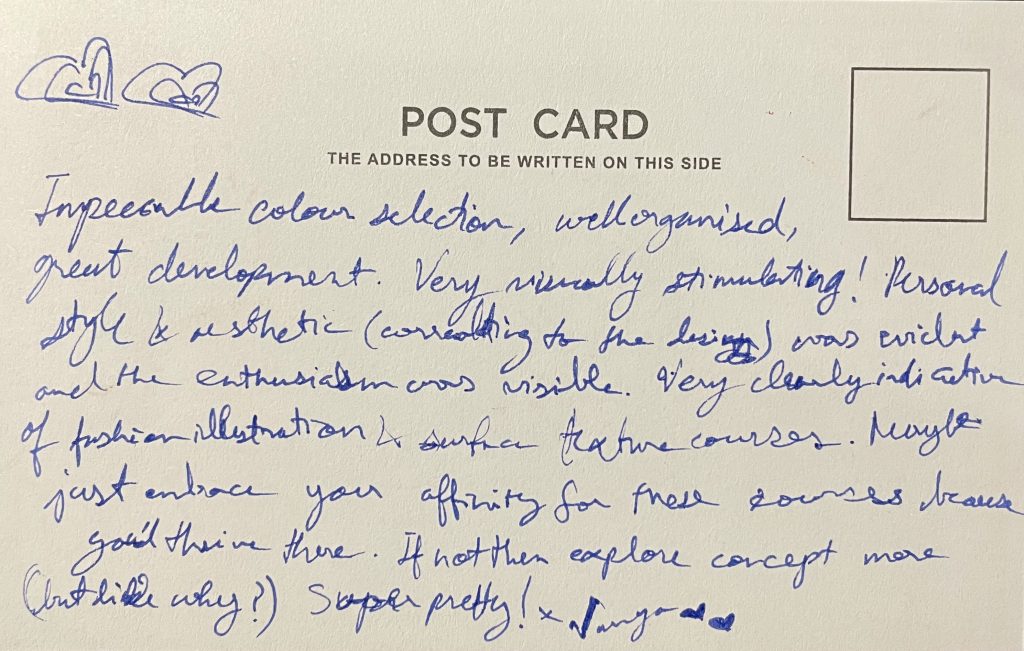 POST CARD
THE ADDRESS TO BE WRITTEN ON THIS SIDE
Impeccable colour selection, well organised,
great development. Very visually stimulating! Personal
style & aesthetic (correlating to the design) was evident
and the enthusiasm was visible. Very clearly indicative
of fashion illustration & surface texture courses. Maybe
just embrace your affinity for these courses because
you'd thrive there. If not then explore concept more
(but like why?) Super pretty! x